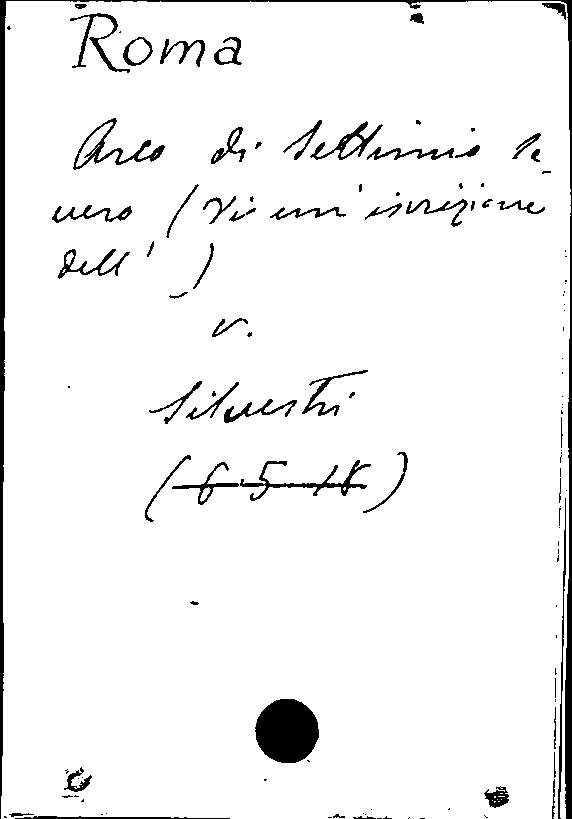 Roma
Arco di Settimio Se-
vero (Vi è un' iscrizione
dell' )
v.
Silvestri
(6.5.18)